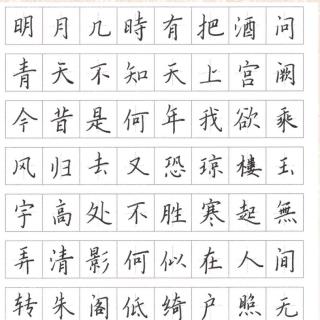 明月几時有把酒问
青天不知天上宫阙
今昔是何年我欲乘
风归去又恐琼樓玉
宇高处不胜寒起無
弄清影何似在人间
转朱阁低绮户照无